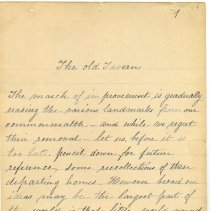 1
The Old Tavern
The march of improvement is gradually
erasing the various landmarks from our
commonwealth - and while we regret
their removal - let us, before it is
too late, pencil down for future
referance, some recollections of these
departing homes. However broad our
ideas may be the largest part of
the world is that little